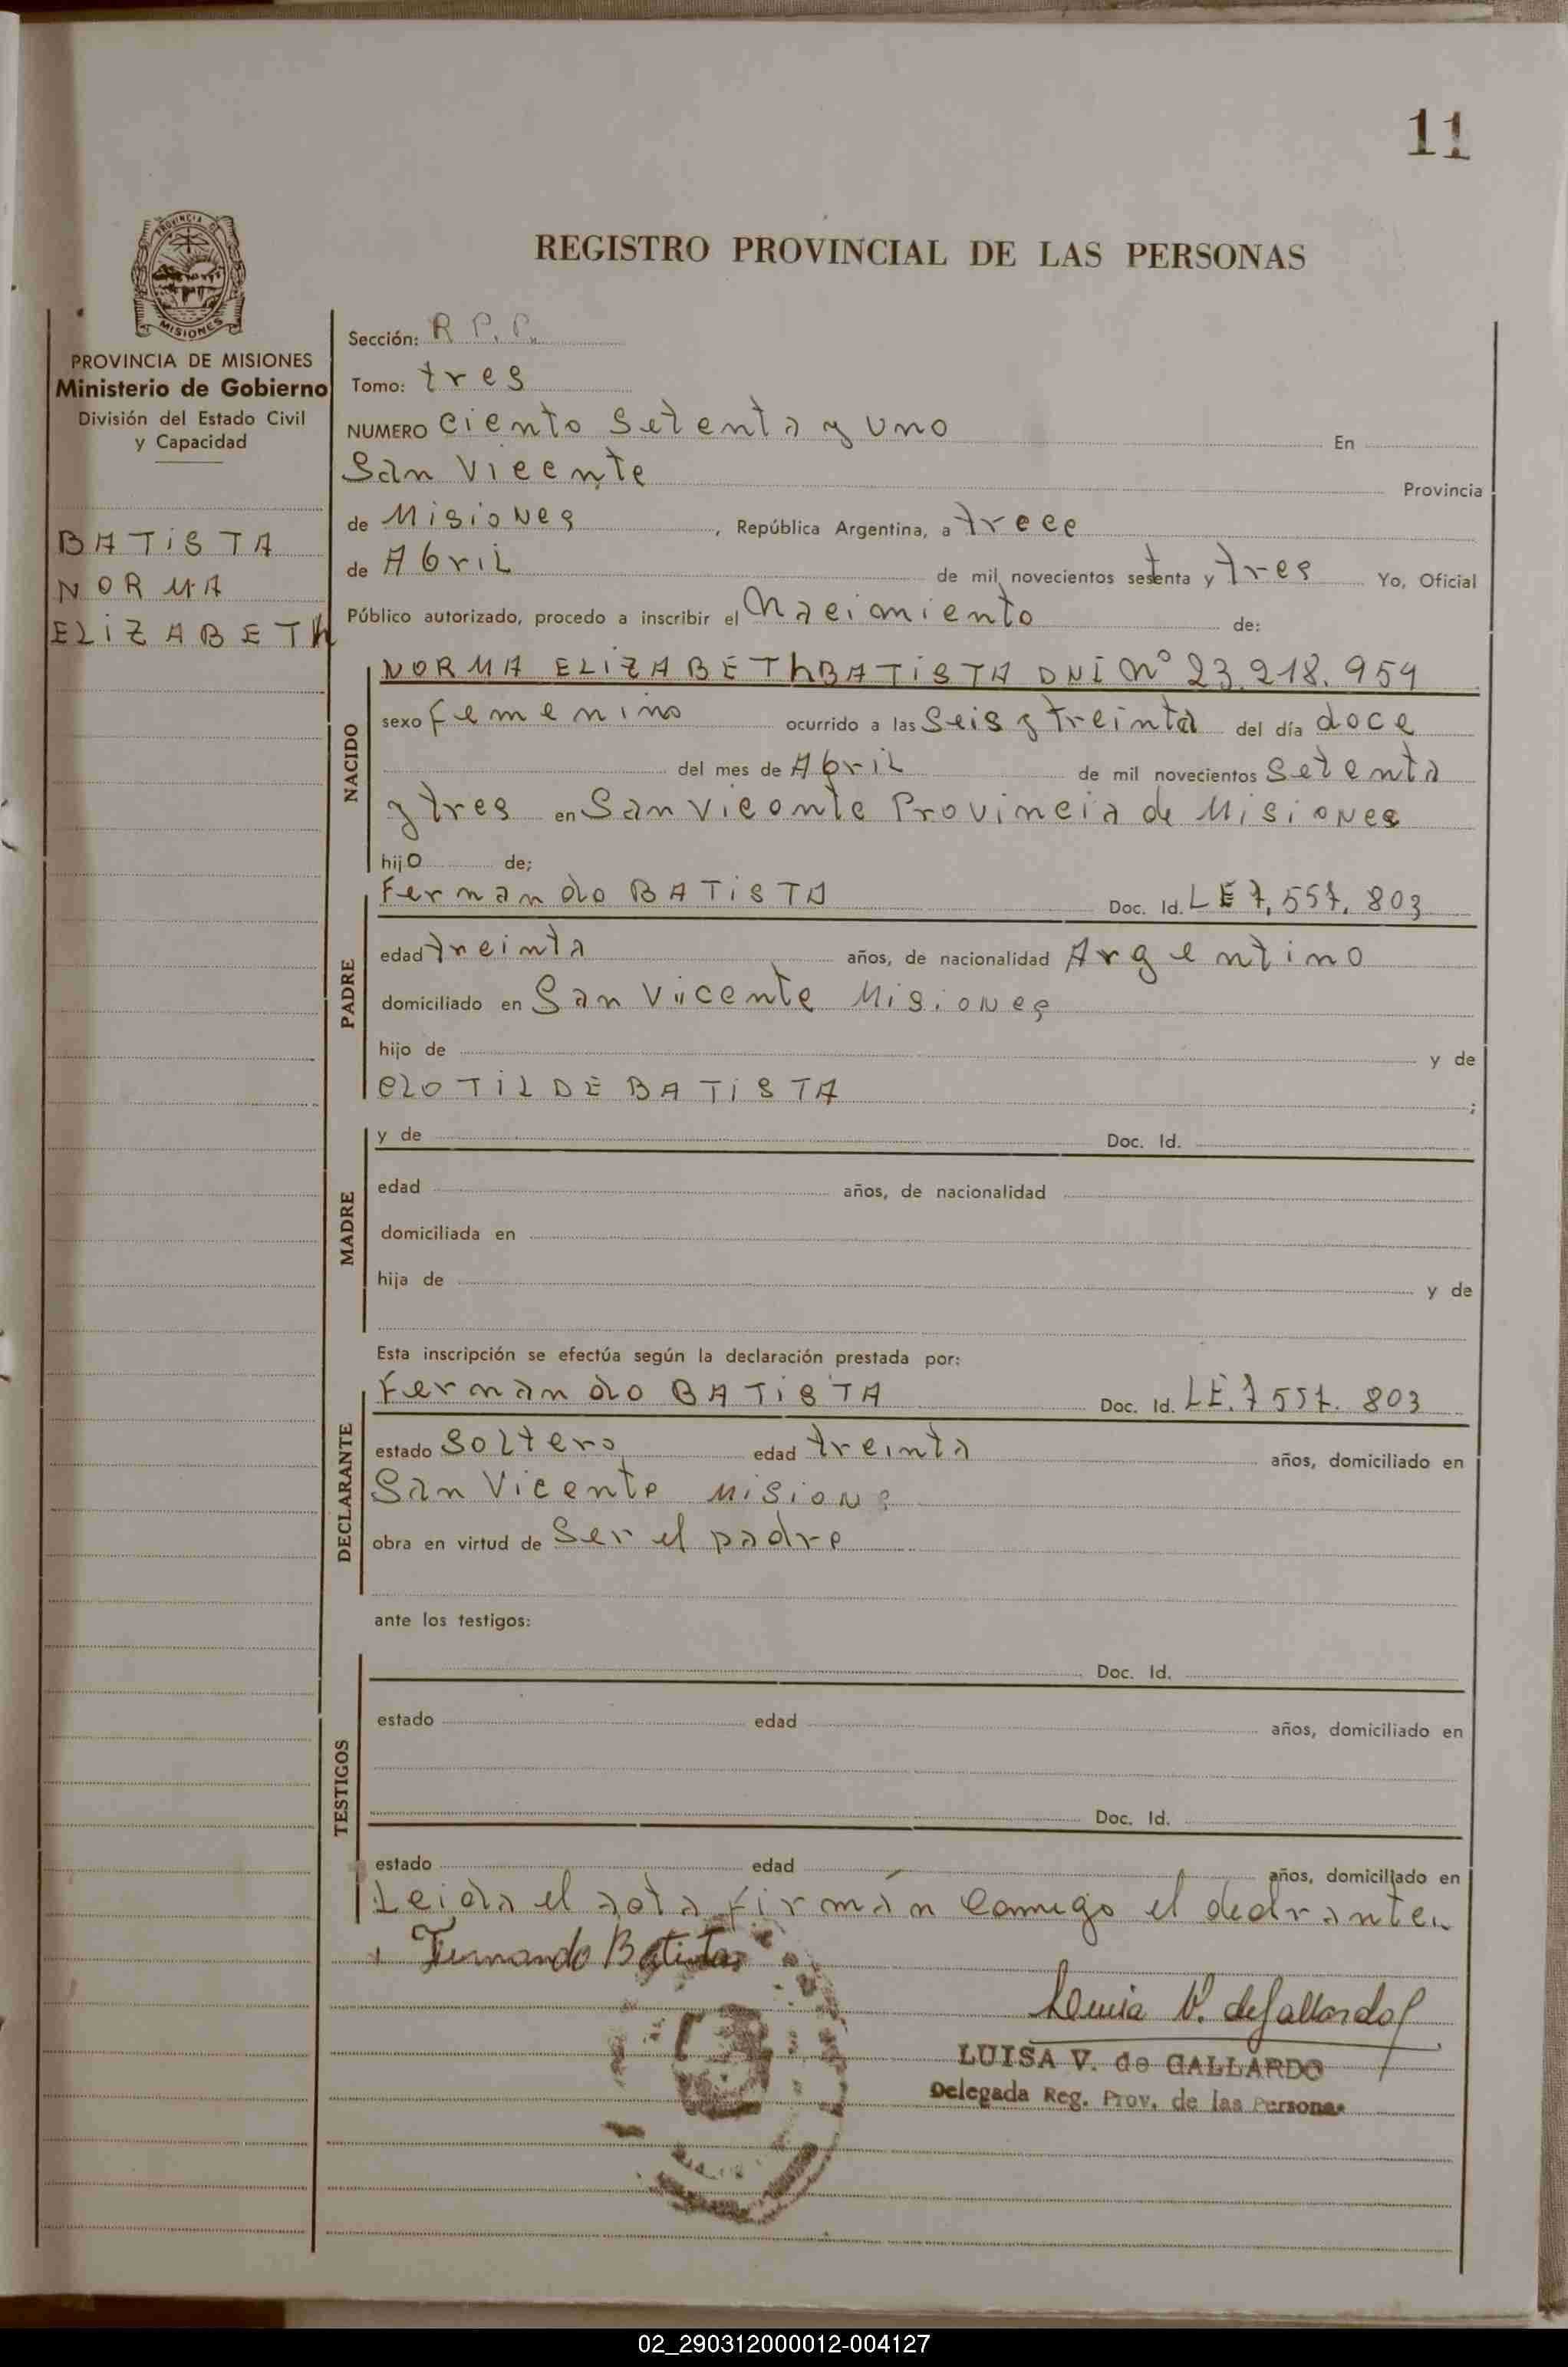 11
PROVINCIA DE
MISIONES
REGISTRO PROVINCIAL DE LAS PERSONAS
PROVINCIA DE MISIONES
Ministerio de Gobierno
División del Estado Civil
y Capacidad
BATISTA
NORMA
ELIZABETh
Sección: R P. P.
Tomo: tres
NUMERO ciento setenta y uno En
San Vicente Provincia
de Misiones, República Argentina, a trece
de Abril de mil novecientos sesenta y tres Yo, Oficial
Público autorizado, procedo a inscribir el Nacimiento de:
NACIDO
NORMA ELIZABETh BATISTA DNI Nº 23.218.959
sexo femenino ocurrido a las seis y treinta del día doce
del mes de Abril de mil novecientos setenta
y tres en San Vicente Provincia de Misiones
hijo de;
PADRE
Fernando BATISTA Doc. Id. LE 7,557.803
edad treinta años, de nacionalidad Argentino
domiciliado en San Vicente Misiones
hijo de y de
CLOTILDE BATISTA ;
MADRE
y de Doc. Id.
edad años, de nacionalidad
domiciliada en
hija de y de
Esta inscripción se efectúa según la declaración prestada por:
DECLARANTE
Fernando BATISTA Doc. Id. LE.7 557.803
estado soltero edad treinta años, domiciliado en
San Vicente Misiones
obra en virtud de ser el padre
ante los testigos:
TESTIGOS
Doc. Id.
estado edad años, domiciliado en
Doc. Id.
estado edad años, domiciliado en
Leida el acta firmán comigo el declrante.
Fernando Batista
Luisa V. de Gallardo
LUISA V. de GALLARDO
Delegada Reg. Prov. de las Personas
02_290312000012-004127